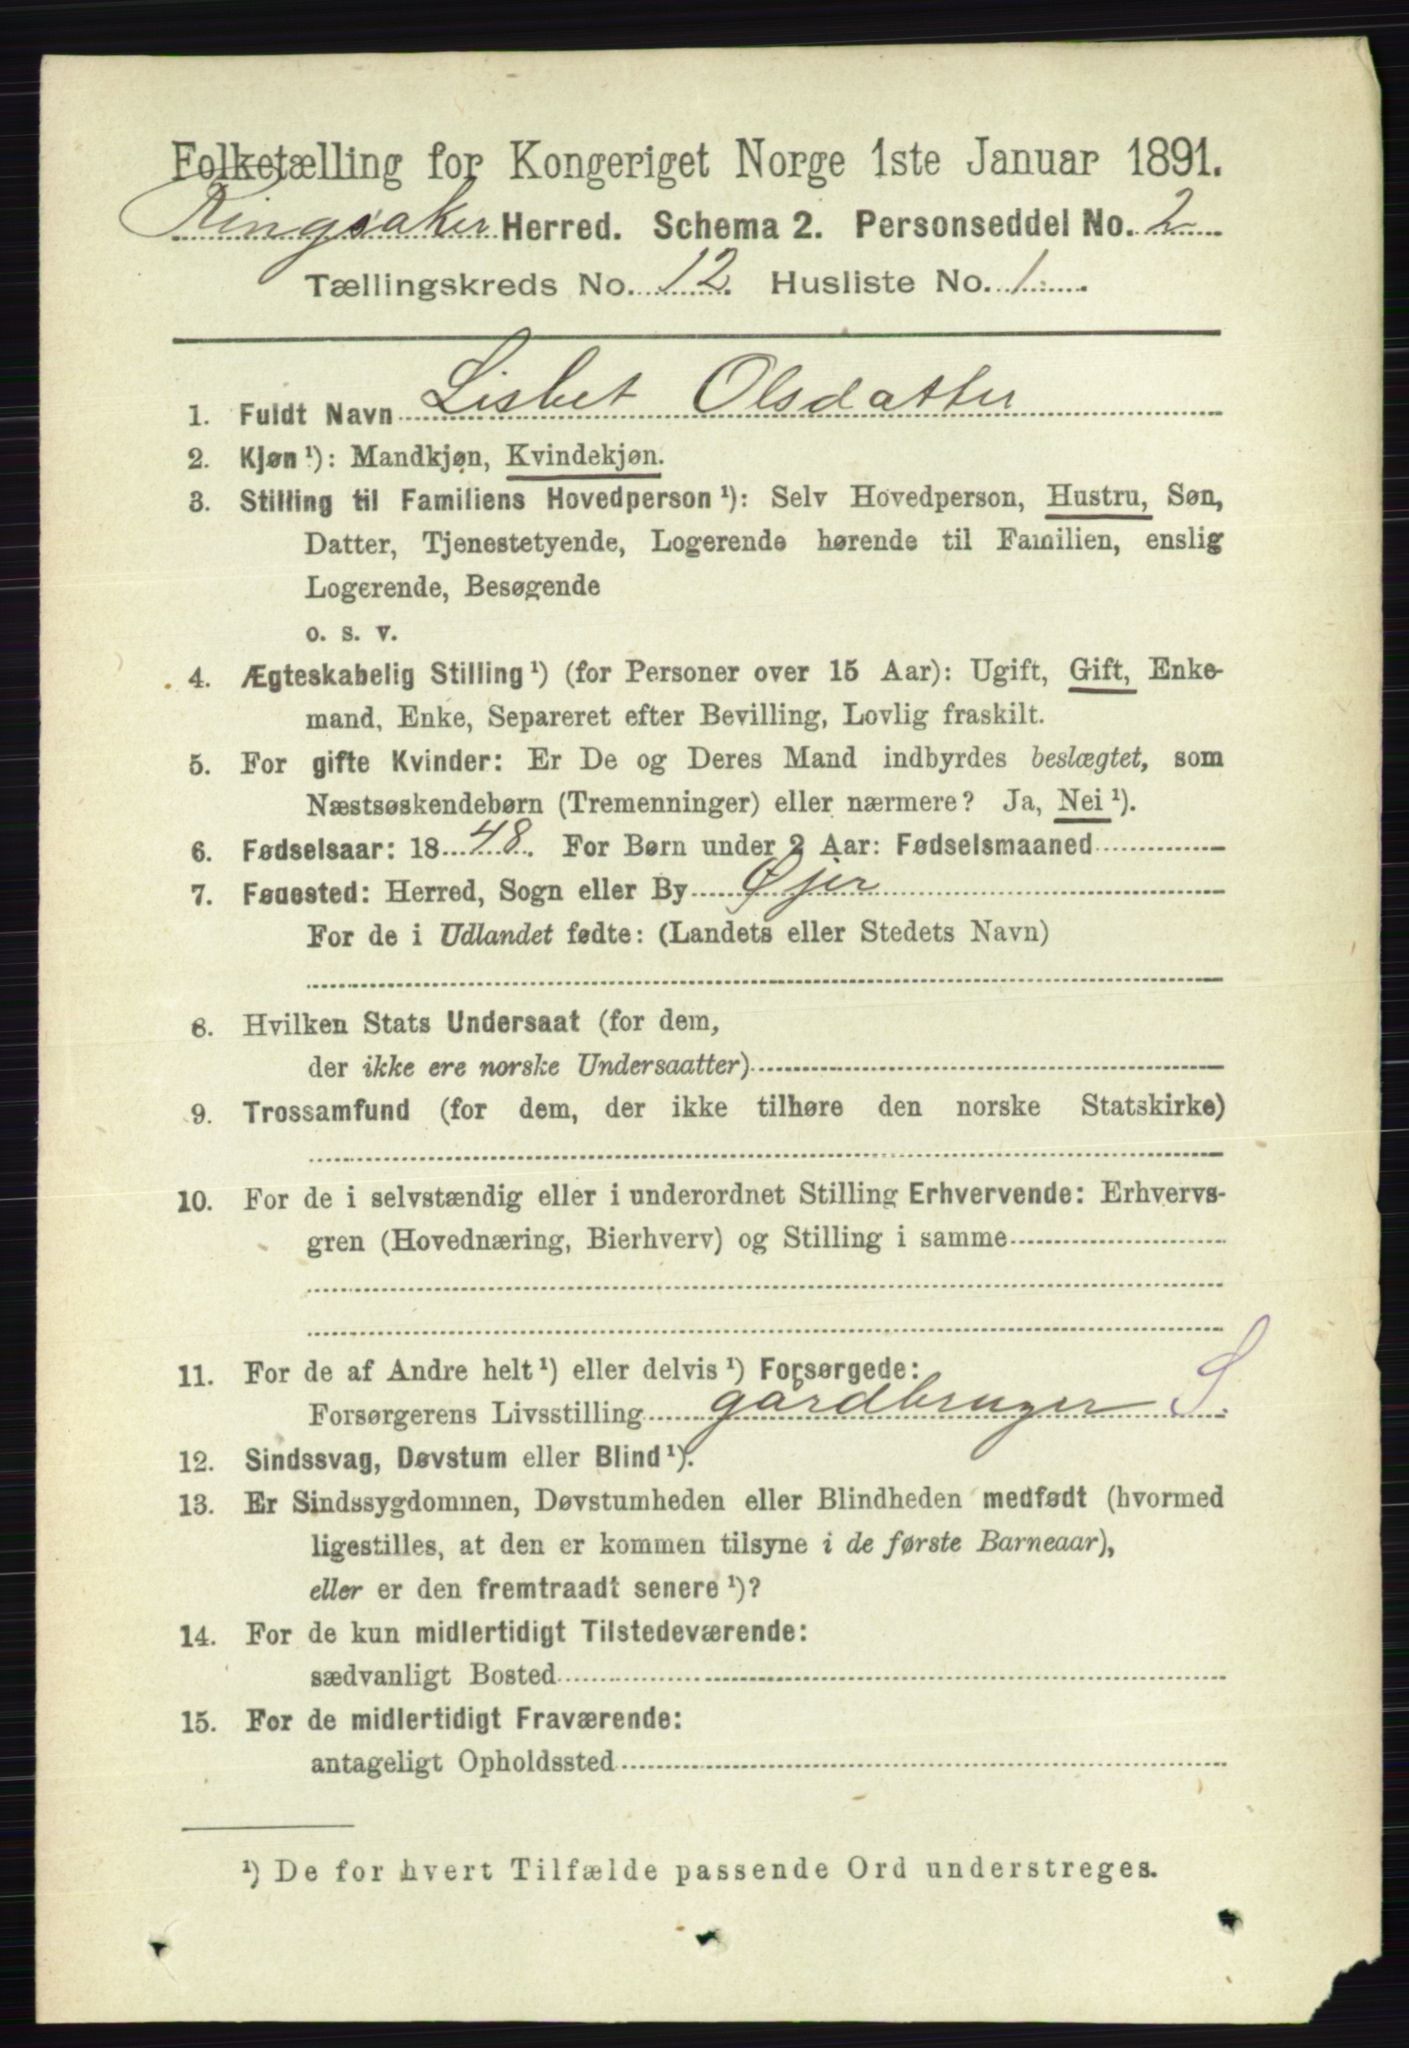 Folketælling for Kongeriget Norge 1ste Januar 1891.
Ringsaker Herred. Schema 2. Personseddel No. 2
Tællingskreds No. 12. Husliste No. 1
1. Fuldt Navn Lisbet Olsdatter
2. Kjøn ¹): Mandkjøn, Kvindekjøn.
3. Stilling til Familiens Hovedperson ¹): Selv Hovedperson, Hustru, Søn,
Datter, Tjenestetyende, Logerende hørende til Familien, enslig
Logerende, Besøgende
o. s. v.
4. Ægteskabelig Stilling ¹) (for Personer over 15 Aar): Ugift, Gift, Enke-
mand, Enke, Separeret efter Bevilling, Lovlig fraskilt.
5. For gifte Kvinder: Er De og Deres Mand indbyrdes beslægtet, som
Næstsøskendebørn (Tremenninger) eller nærmere? Ja, Nei ¹).
6. Fødselsaar: 18 48. For Børn under 2 Aar: Fødselsmaaned
7. Fødested: Herred, Sogn eller By Øjer
For de i Udlandet fødte: (Landets eller Stedets Navn)
8. Hvilken Stats Undersaat (for dem,
der ikke ere norske Undersaatter)
9. Trossamfund (for dem, der ikke tilhøre den norske Statskirke)
10. For de i selvstændig eller i underordnet Stilling Erhvervende: Erhvervs-
gren (Hovednæring, Bierhverv) og Stilling i samme
11. For de af Andre helt ¹) eller delvis ¹) Forsørgede:
Forsørgerens Livsstilling gårdbruger S.
12. Sindssvag, Døvstum eller Blind ¹).
13. Er Sindssygdommen, Døvstumheden eller Blindheden medfødt (hvormed
ligestilles, at den er kommen tilsyne i de første Barneaar),
eller er den fremtraadt senere ¹)?
14. For de kun midlertidigt Tilstedeværende:
sædvanligt Bosted
15. For de midlertidigt Fraværende:
antageligt Opholdssted
¹) De for hvert Tilfælde passende Ord understreges.